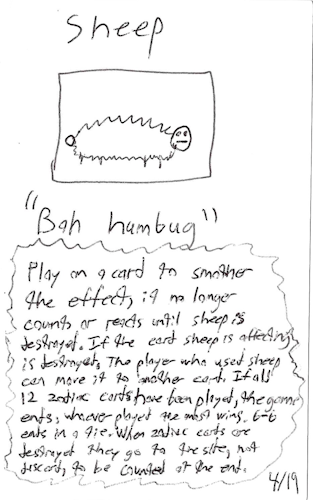 Sheep
"Bah humbug"
Play on a card to smother
the effect, it no longer
counts or reacts until sheep is
destroyed. If the card sheep is affecting
is destroyed, The player who used sheep
can move it to another card. If all
12 zodiac cards have been played, the game
ends, whoever played the most wins. 6-6
ends in a tie. When zodiac cards are
destroyed they go to the site, not
discard, to be counted at the end.
4/19